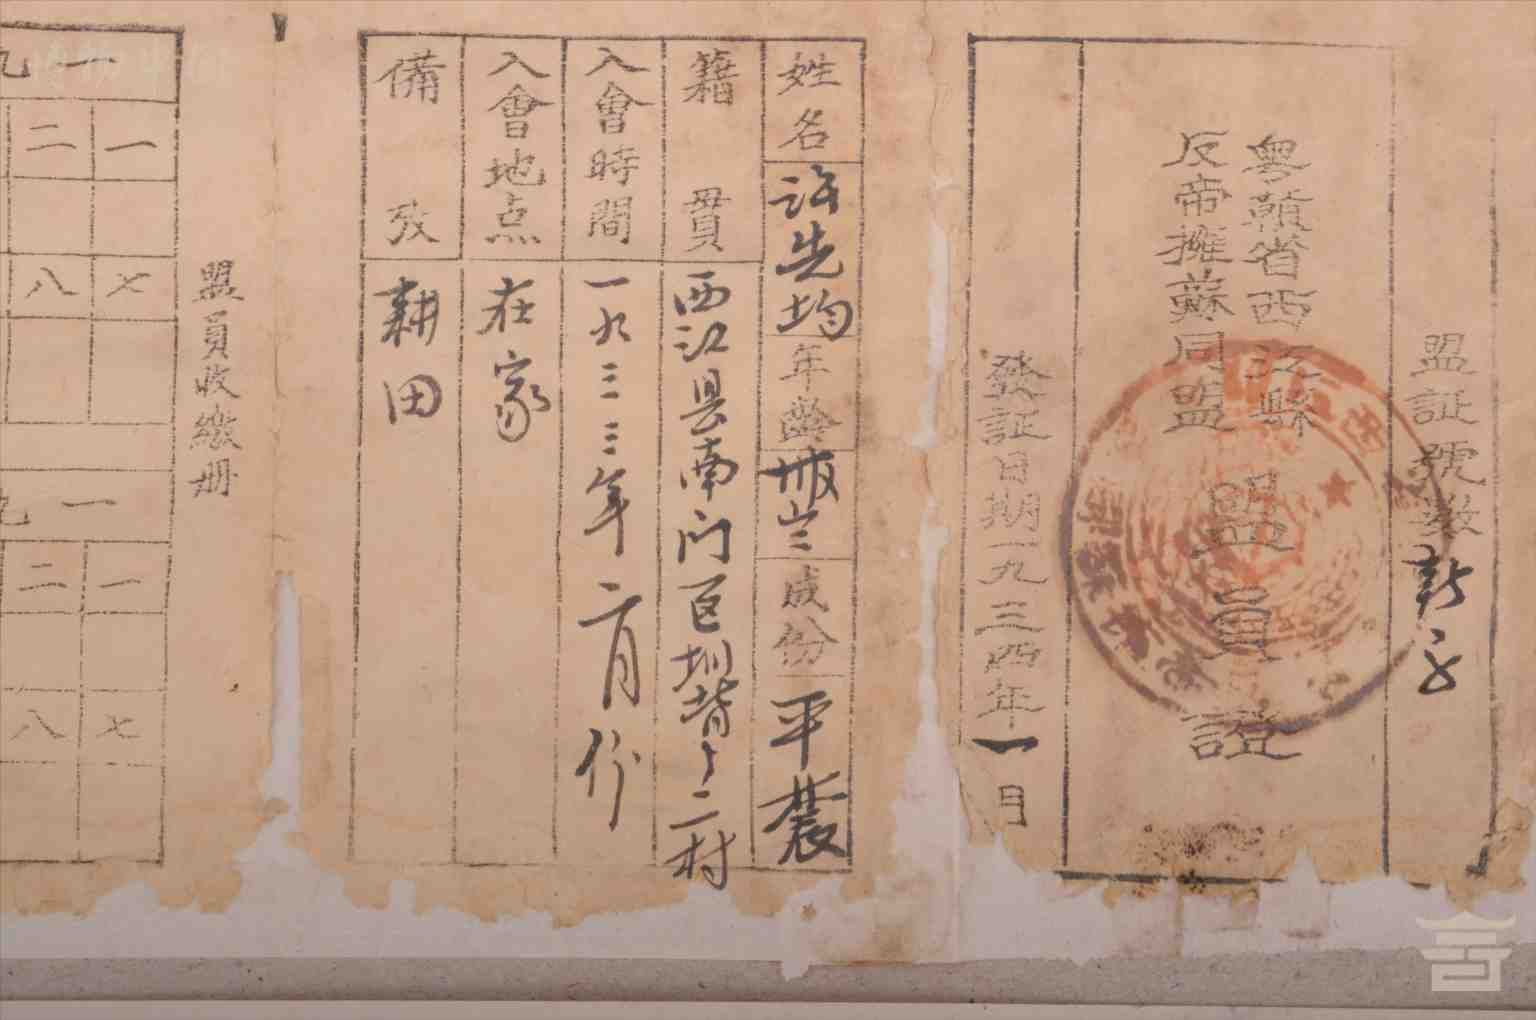 盟証號数新
粤贛省西江縣
反帝擁蘇同盟
盟員證
發証日期一九三四年一月
姓名 許先均 年齡 成份 平農
籍貫 西江县南门区圳背二村
入會時間 一九三三年二月份
入會地点 在家
備攷 耕田
盟員收繳册
一九
一 二
七 八
一九
一 二
七 八